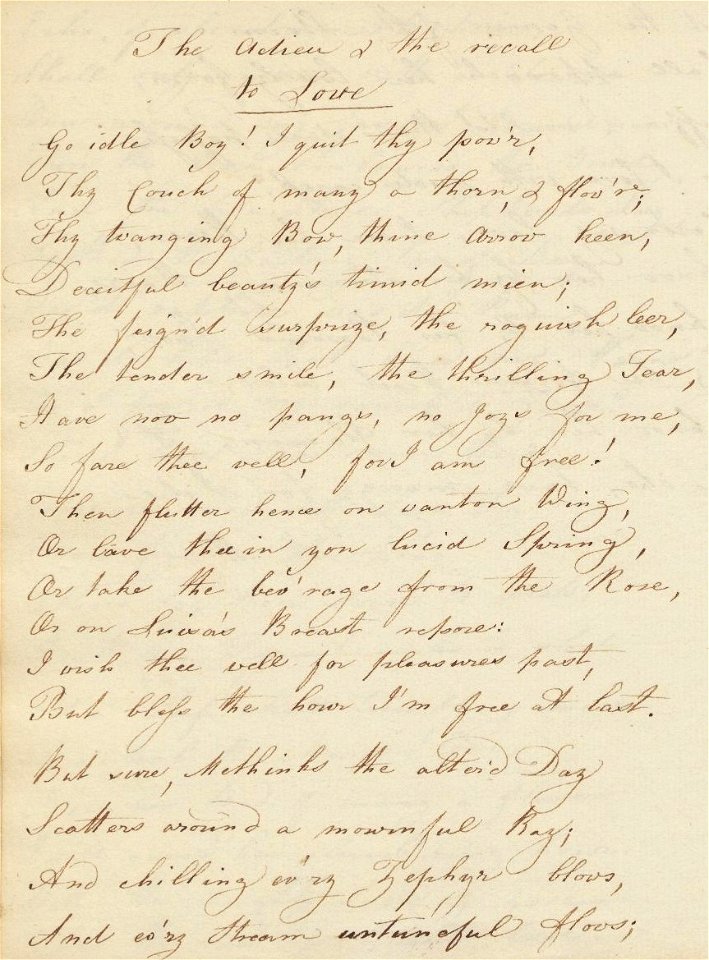 The Adieu & the recall
to Love
Go idle Boy! I quit thy pow'r,
Thy Couch of many a thorn, & flow'r;
Thy twanging Bow, thine Arrow keen,
Deceitful beauty's timid mien;
The feign'd surprize, the roguish leer,
The tender smile, the thrilling Tear,
Have now no pangs, no Joys for me,
So fare thee well, for I am free!
Then flutter hence on wanton Wing,
Or lave thee in yon lucid Spring,
Or take the bev'rage from the Rose,
Or on Luisa's Breast repose:
I wish thee well for pleasures past,
But bless the hour I'm free at last.
But sure, Methinks the alter'd Day
Scatters around a mournful Ray;
And chilling ev'ry Zephyr blows,
And ev'ry stream untuneful flows;